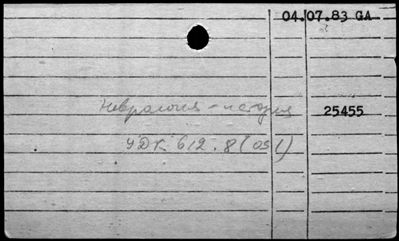 04.07.83 GA
Неврология - история
25455
УДК 612.8(091)